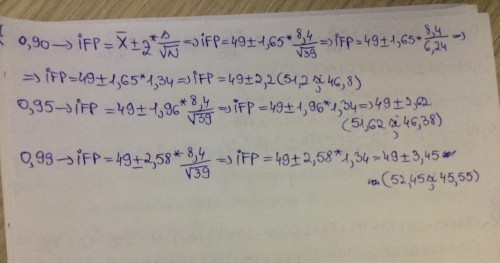 0,90 → iFP = X̄ ± 2* s/√N ⇒ iFP = 49 ± 1,65* 8,4/√39 ⇒ iFP = 49 ± 1,65* 8,4/6,24 ⇒
⇒ iFP = 49 ± 1,65*1,34 ⇒ iFP = 49 ± 2,2 (51,2 și 46,8)
0,95 → iFP = 49 ± 1,96* 8,4/√39 ⇒ iFP = 49 ± 1,96* 1,34 ⇒ 49 ± 2,62
(51,62 și 46,38)
0,99 → iFP = 49 ± 2,58* 8,4/√39 ⇒ iFP = 49 ± 2,58* 1,34 = 49 ± 3,45
(52,45 și 45,55)